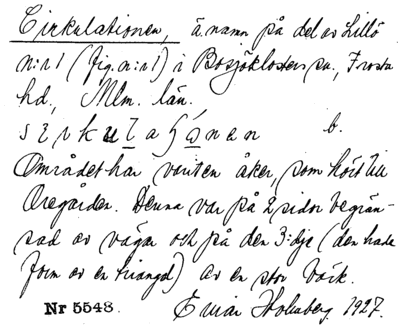 Cirkulationen, ä. namn på del av Lillö
n:r 1 (fig. n:r 1) i Bosjöklosters sn, Frosta
hd, Mlm. län.
b.
Området har varit en åker, som hört till
Oregården. Denna var på 2 sidor begrän-
sad av vägar och på den 3:dje (den hade
form av en triangel) av en stor bäck.
Nr 5548. Einar Holmberg 1927.